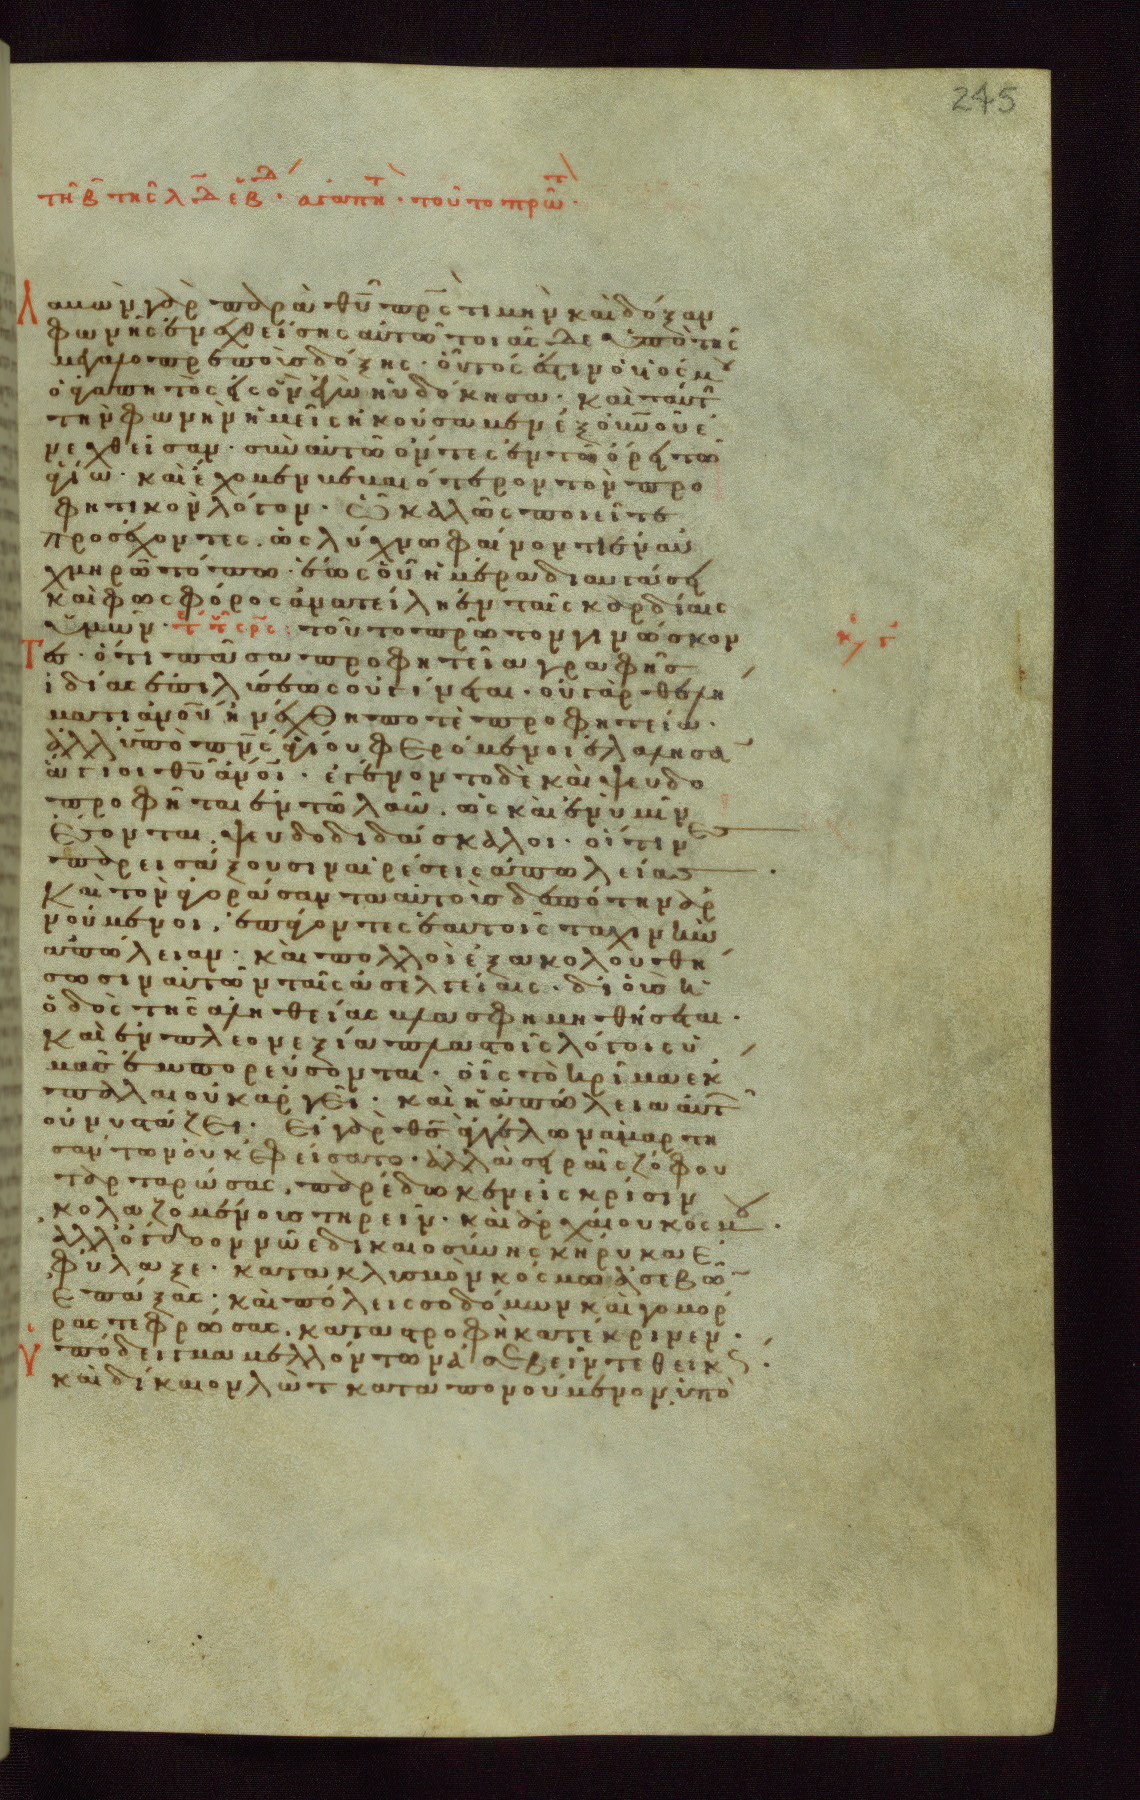 245
τῆ β τῆς λδ ἑβδ. ἀγαπητ. τοῦτο πρῶτ.
Λαβὼν γὰρ παρὰ θυ πρς τιμὴν καὶ δόξαν
φωνῆς ἐνεχθείσης αὐτῶ τοιᾶσδε ὑπὸ τῆς
μεγαλοπρεποῦς δόξης. οὗτός ἐστιν ὁ υἱός μου
ὁ ἀγαπητὸς εἰς ὃν ἐγὼ ηὐδόκησα. καὶ ταύτ
τὴν φωνὴν ἡμεῖς ἠκούσαμεν ἐξ οὐνοῦ ἐ
νεχθεῖσαν. σὺν αὐτῶ ὄντες ἐν τῶ ὄρει τῶ
ἁγίω. καὶ ἔχομεν βεβαιότερον τὸν προ
φητικὸν λόγον. ὧ καλῶς ποιεῖτε
προσέχοντες. ὡς λύχνω φαίνοντι ἐν αὐ
χμηρῶ τόπω. ἕως οὗ ἡμέρα διαυγάση
καὶ φωσφόρος ἀνατείλη ἐν ταῖς καρδίαις
ὑμῶν. τοῦτο πρῶτον γινώσκον
τες. ὅτι πᾶσα προφητεία γραφῆς
ἰδίας ἐπιλύσεως οὐ γίνεται. οὐ γὰρ θελή
ματι ἀνοῦ ἠνέχθη ποτὲ προφητεία.
ἀλλ' ὑπὸ πνς ἁγίου φερόμενοι ἐλάλησα
ἅγιοι θυ ἀνοι. ἐγένοντο δὲ καὶ ψευδο
προφῆται ἐν τῶ λαῶ. ὡς καὶ ἐν ὑμῖν
ἔσονται ψευδοδιδάσκαλοι. οἵτινες
παρεισάξουσιν αἱρέσεις ἀπωλείας.
καὶ τὸν ἀγοράσαντα αὐτοὺς δεσπότην ἀρ
νούμενοι. ἐπάγοντες ἑαυτοῖς ταχινὴν
ἀπώλειαν. καὶ πολλοὶ ἐξακολουθή
σωσιν αὐτῶν ταῖς ἀσελγείαις. δι' οὓς ἡ
ὁδὸς τῆς ἀληθείας βλασφημηθήσεται.
καὶ ἐν πλεονεξία πλαστοῖς λόγοις ὑ
μᾶς ἐμπορεύσονται. οἷς τὸ κρίμα ἔκ
παλαι οὐκ ἀργεῖ. καὶ ἡ ἀπώλεια αὐτ
οὐ νυστάζει. εἰ γὰρ ὁ θς ἀγγέλων ἁμαρτη
σάντων οὐκ ἐφείσατο. ἀλλὰ σειραῖς ζόφου
ταρταρώσας, παρέδωκεν εἰς κρίσιν
κολαζομένους τηρεῖν. καὶ ἀρχαίου κόσμου.
ἀλλ' ὄγδοον νῶε δικαιοσύνης κήρυκα ἐ
φύλαξε. κατακλισμὸν κόσμω ἀσεβῶ
ἐπάξας. καὶ πόλεις σοδόμων καὶ γομόρ
ρας τεφρώσας, καταστροφῆ κατέκρινεν.
ὑπόδειγμα μελλόντων ἀσεβεῖν τεθεικώς.
καὶ δίκαιον λὼτ καταπονούμενον ὑπὸ